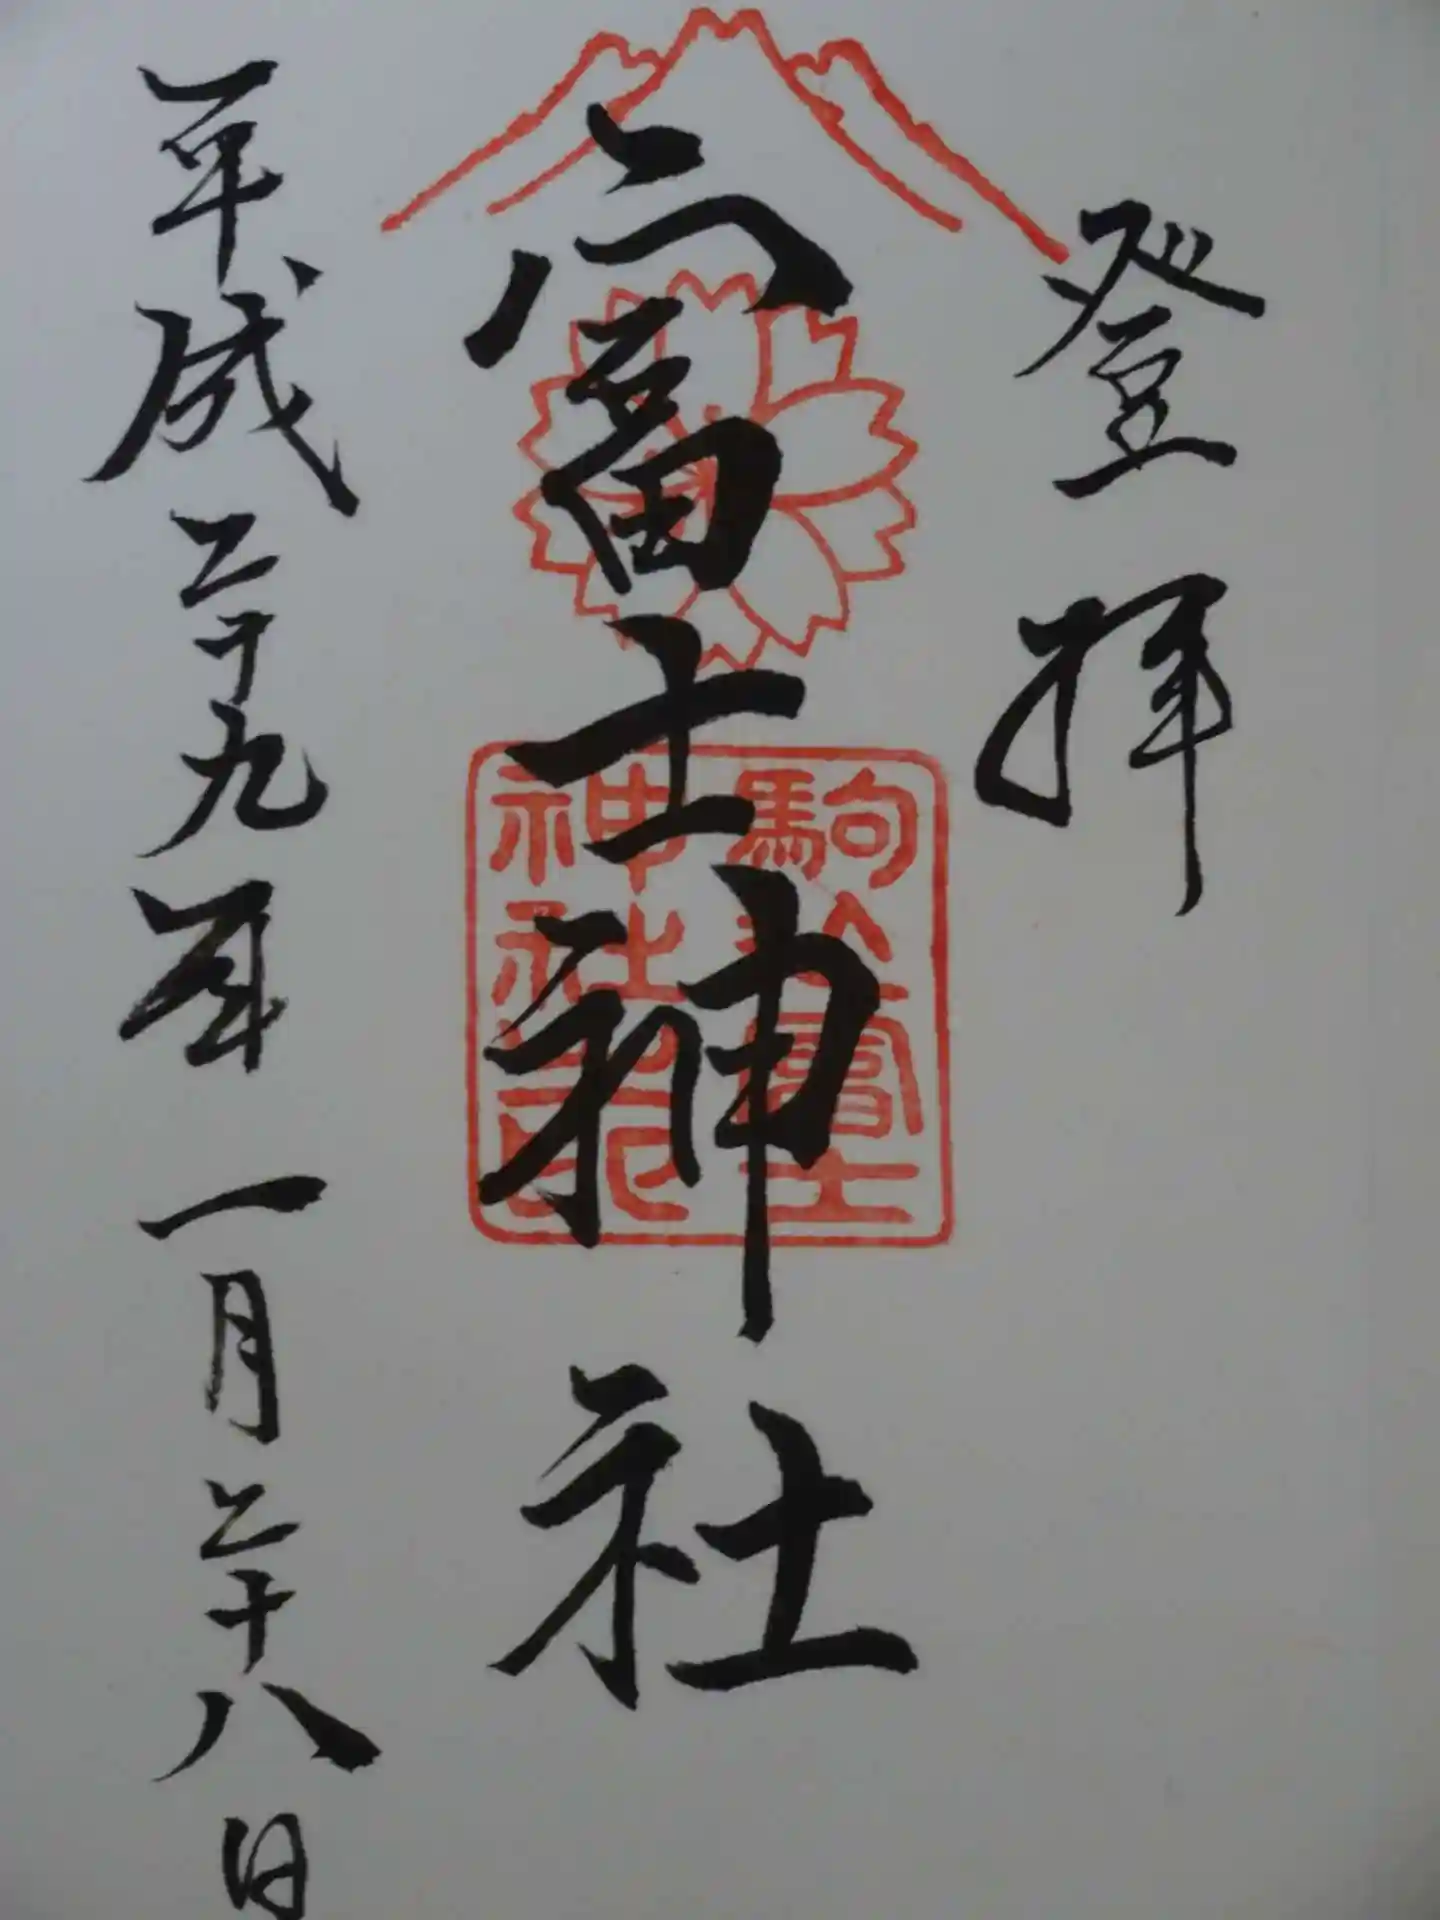 登拝
六富士神社
駒込富士
神社之印
平成二十九年一月二十八日